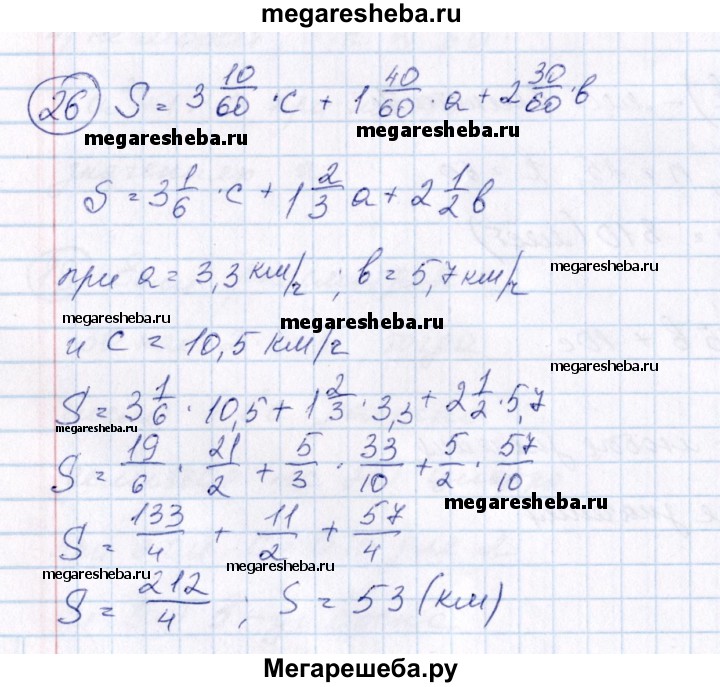 megaresheba.ru
26 S = 3 10/60 · c + 1 40/60 · a + 2 30/60 · в
megaresheba.ru megaresheba.ru
S = 3 1/6 · c + 1 2/3 a + 2 1/2 в
при a = 3,3 км/ч ; в = 5,7 км/ч
megaresheba.ru
megaresheba.ru megaresheba.ru
и c = 10,5 км/ч
S = 3 1/6 · 10,5 + 1 2/3 · 3,3 + 2 1/2 · 5,7
megaresheba.ru
S = 19/6 · 21/2 + 5/3 · 33/10 + 5/2 · 57/10
megaresheba.ru
S = 133/4 + 11/2 + 57/4
megaresheba.ru megaresheba.ru
S = 212/4 ; S = 53 (км)
Мегарешеба.ру